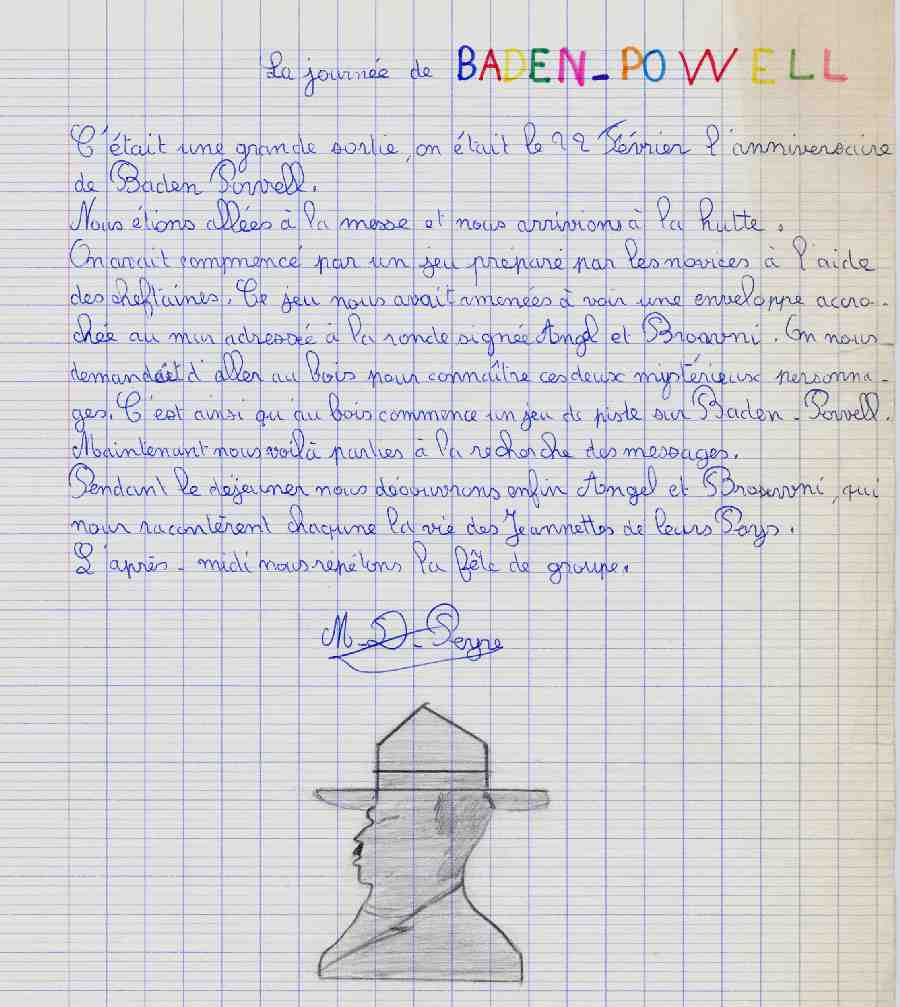 La journée de BADEN-POWELL
C'était une grande sortie, on était le 22 Février l'anniversaire
de Baden Powell.
Nous étions allées à la messe et nous arrivions à la hutte.
On avait commencé par un jeu préparé par les novices à l'aide
des cheftaines. Ce jeu nous avait amenées à voir une enveloppe accro-
chée au mur adressée à la ronde signée Angel et Browni. On nous
demandait d'aller au bois pour connaître ces deux mystérieux personna-
ges. C'est ainsi qu'au bois commence un jeu de piste sur Baden-Powell.
Maintenant nous voilà parties à la recherche des messages.
Pendant le déjeuner nous découvrons enfin Angel et Browni, qui
nour racontèrent chacune la vie des Jeannettes de leurs Pays.
L'après-midi nous répétons la fête de groupe.
M-D-Peyre